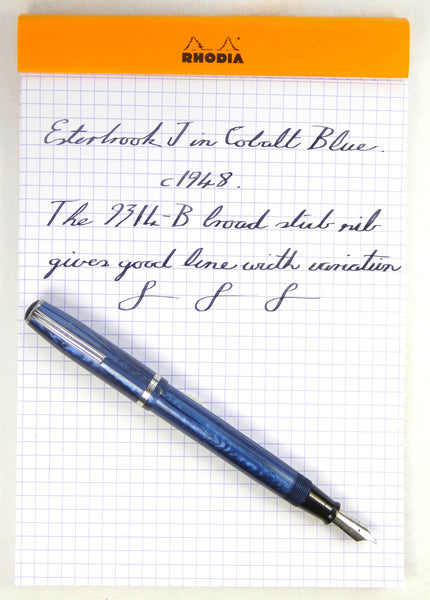 RHODIA
Esterbrook J in Cobalt Blue.
c1948.
The 9314-B broad stub nib
gives good line width variation